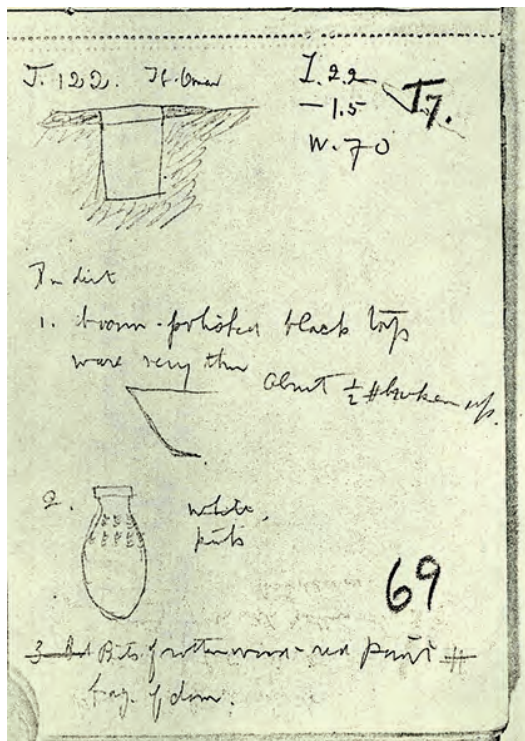 T. 122.
L. 2.2
T7.
— 1.5
W. 70
In dirt
1. brown-polished black top
ware very thin
About ½ # broken up.
2.
white,
pink
69
3 Bits of rotten wood - red paint #
frag. of dom.